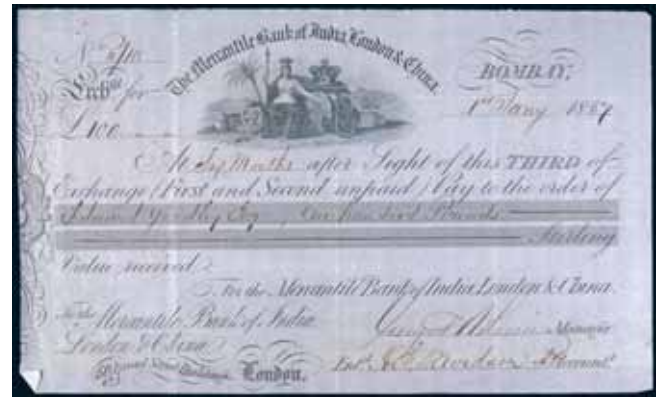 The Mercantile Bank of India, London & China.
Exch^ge for
£100
BOMBAY,
1st Jany 1857
At Six Months after Sight of this THIRD of
Exchange (First and Second unpaid) Pay to the order of
One hundred Pounds
Sterling
Value received.
For the Mercantile Bank of India, London & China.
To the Mercantile Bank of India
London & China
Manager
London.
Ent^d
Account^t